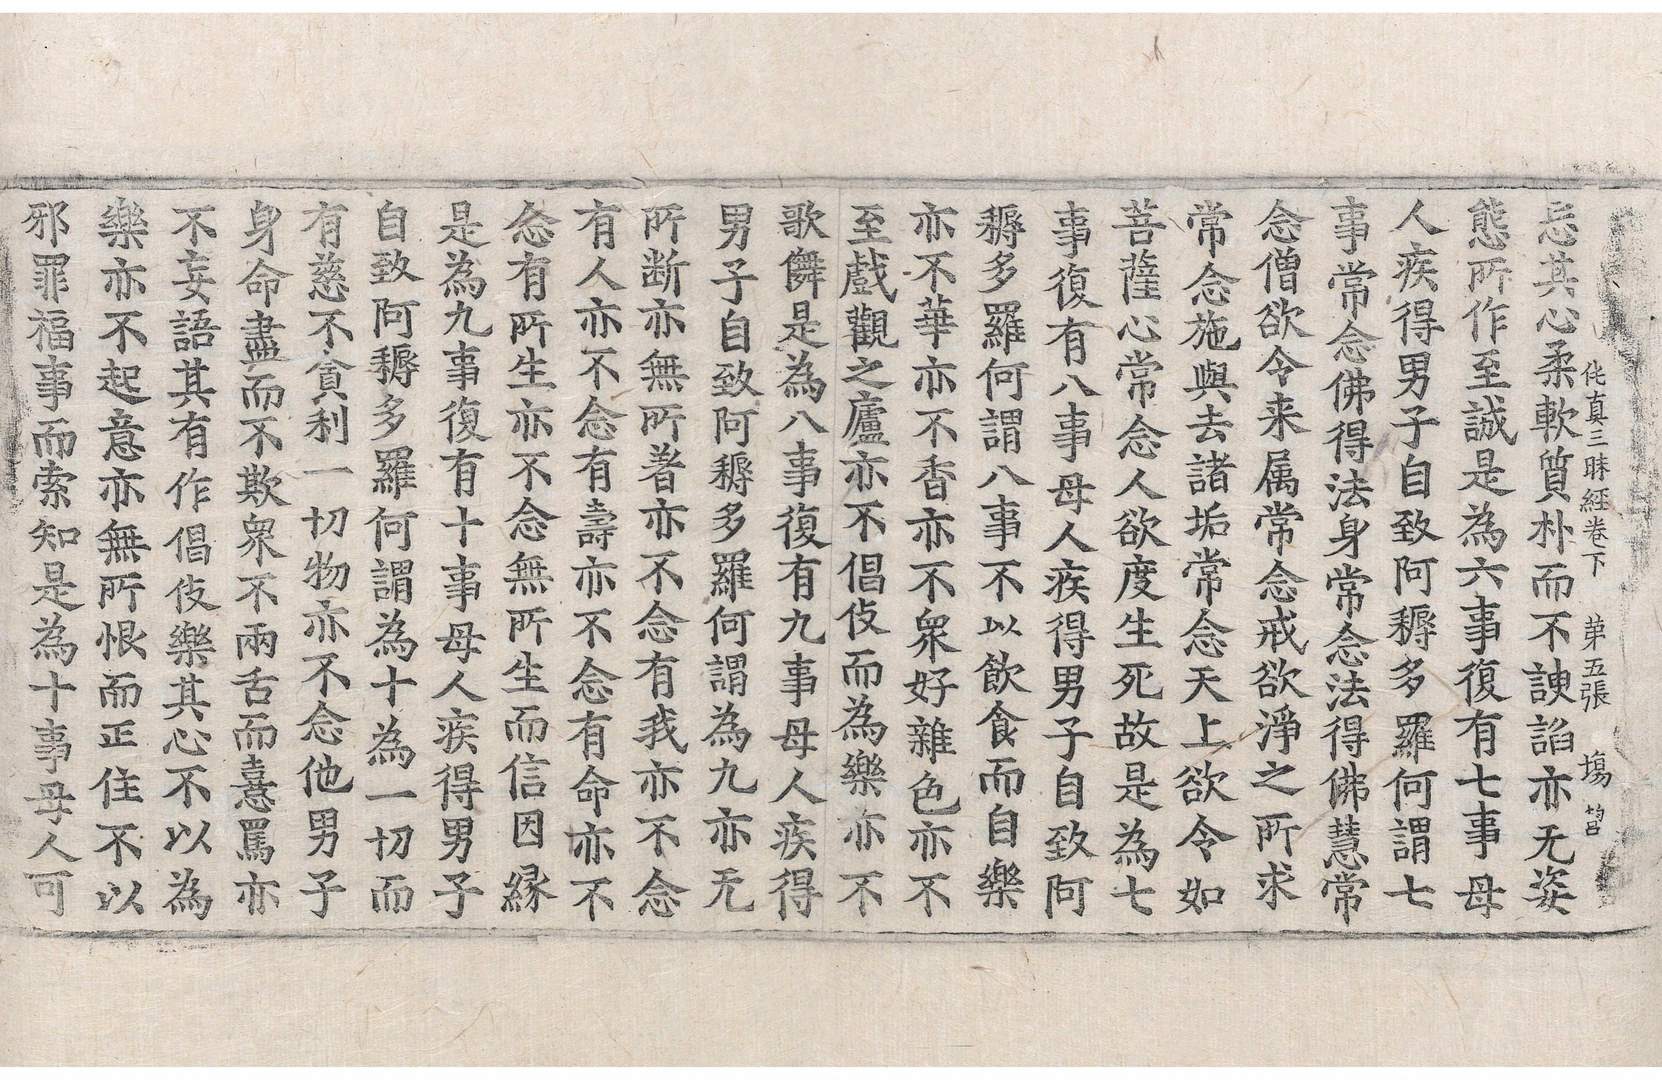 佗真三昧經卷下　第五張　場
忘其心柔軟質朴而不諛諂亦无姿
態所作至誠是為六事復有七事母
人疾得男子自致阿耨多羅何謂七
事常念佛得法身常念法得佛慧常
念僧欲令来属常念戒欲淨之所求
常念施與去諸垢常念天上欲令如
菩薩心常念人欲度生死故是為七
事復有八事母人疾得男子自致阿
耨多羅何謂八事不以飲食而自樂
亦不華亦不香亦不衆好雜色亦不
至戲觀之廬亦不倡伎而為樂亦不
歌儛是為八事復有九事母人疾得
男子自致阿耨多羅何謂為九亦无
所断亦無所著亦不念有我亦不念
有人亦不念有壽亦不念有命亦不
念有所生亦不念無所生而信因縁
是為九事復有十事母人疾得男子
自致阿耨多羅何謂為十為一切而
有慈不貪利一切物亦不念他男子
身命盡而不欺衆不兩舌而憙罵亦
不妄語其有作倡伎樂其心不以為
樂亦不起意亦無所恨而正住不以
邪罪福事而索知是為十事母人可